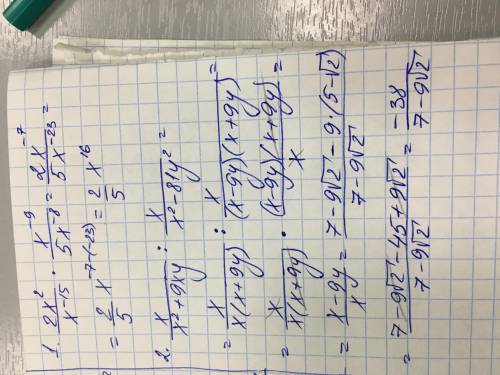 1. 2x²/x⁻¹⁵ · x⁻⁹/5x⁻⁸ = 2x⁻⁷/5x⁻²³ =
= 2/5 x⁻⁷⁻⁽⁻²³⁾ = 2/5 x¹⁶
2. x/x²+9xy : x/x²-81y² =
= x/x(x+9y) : x/(x-9y)(x+9y) =
= x/x(x+9y) · (x-9y)(x+9y)/x =
= x-9y/x = 7-9√2 - 9·(5-√2)/7-9√2
= 7-9√2-45+9√2/7-9√2 = -38/7-9√2